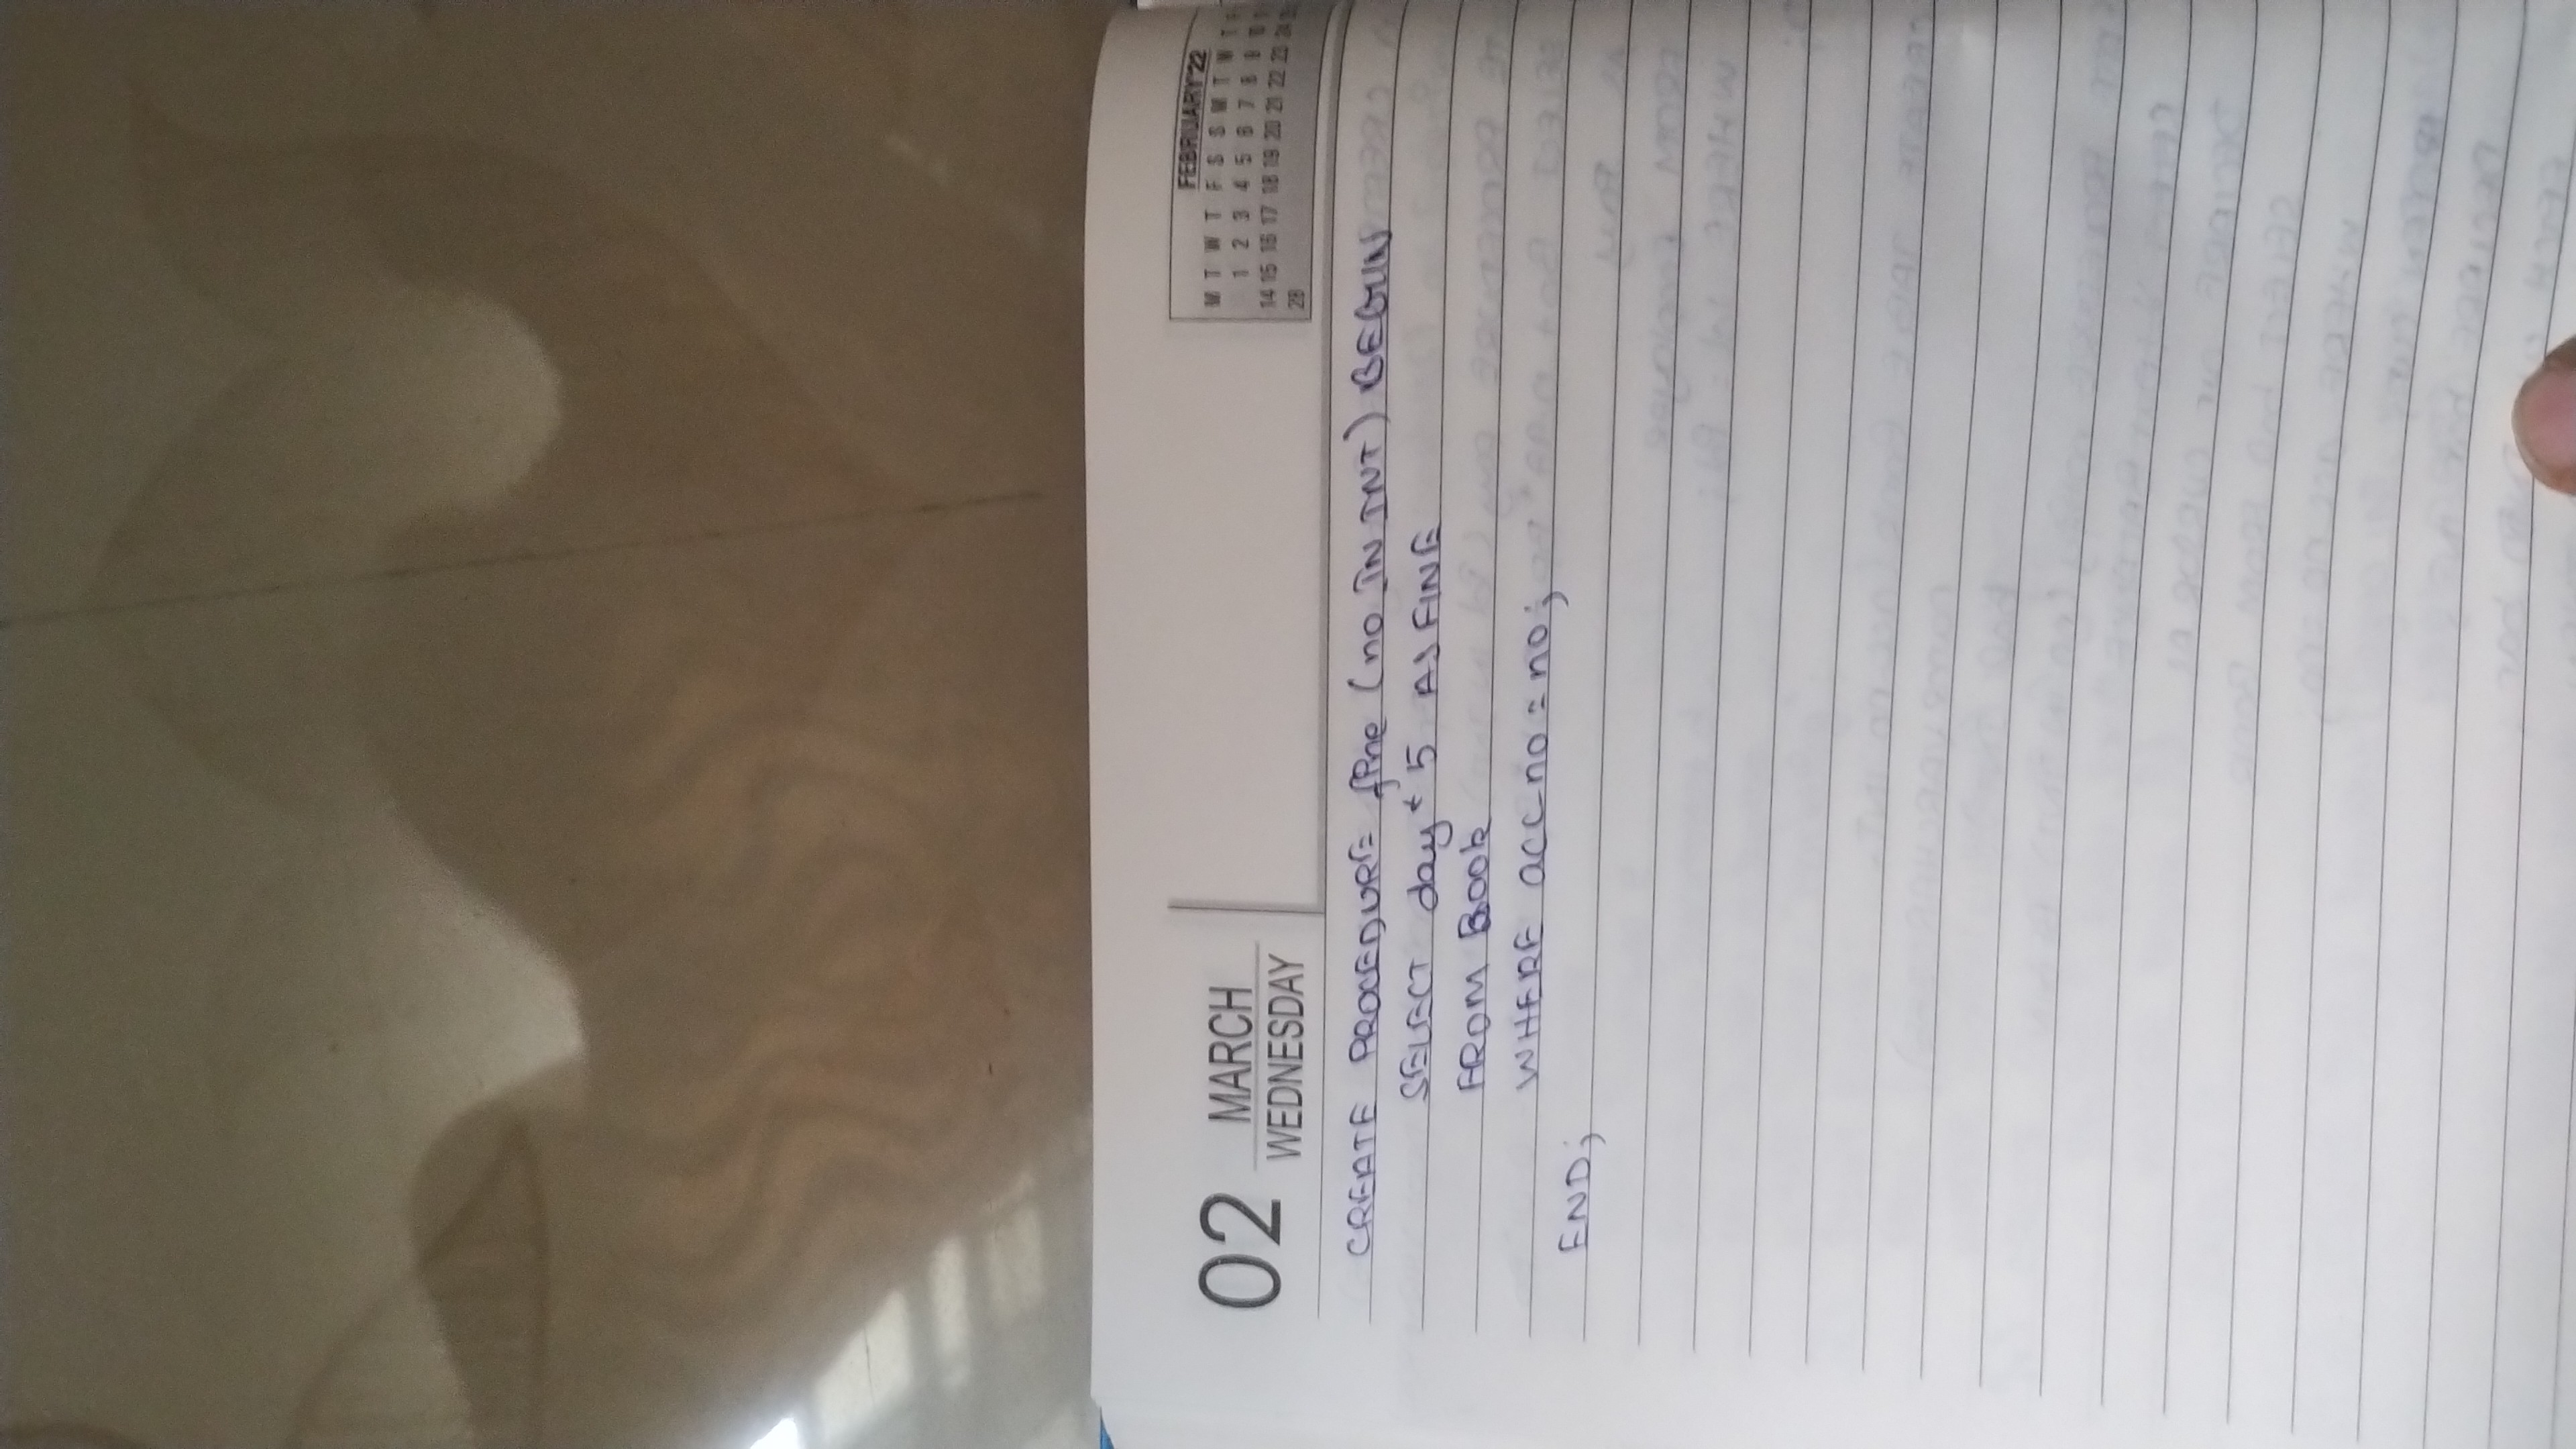 02 MARCH
WEDNESDAY
FEBRUARY'22
M T W T F S S M T W T F
1 2 3 4 5 6 7 8 9 10
14 15 16 17 18 19 20 21 22 23 24
28
CREATE PROCEDURE fine (no IN INT) BEGIN
SELECT day * 5 AS FINE
FROM Book
WHERE accno = no;
END;